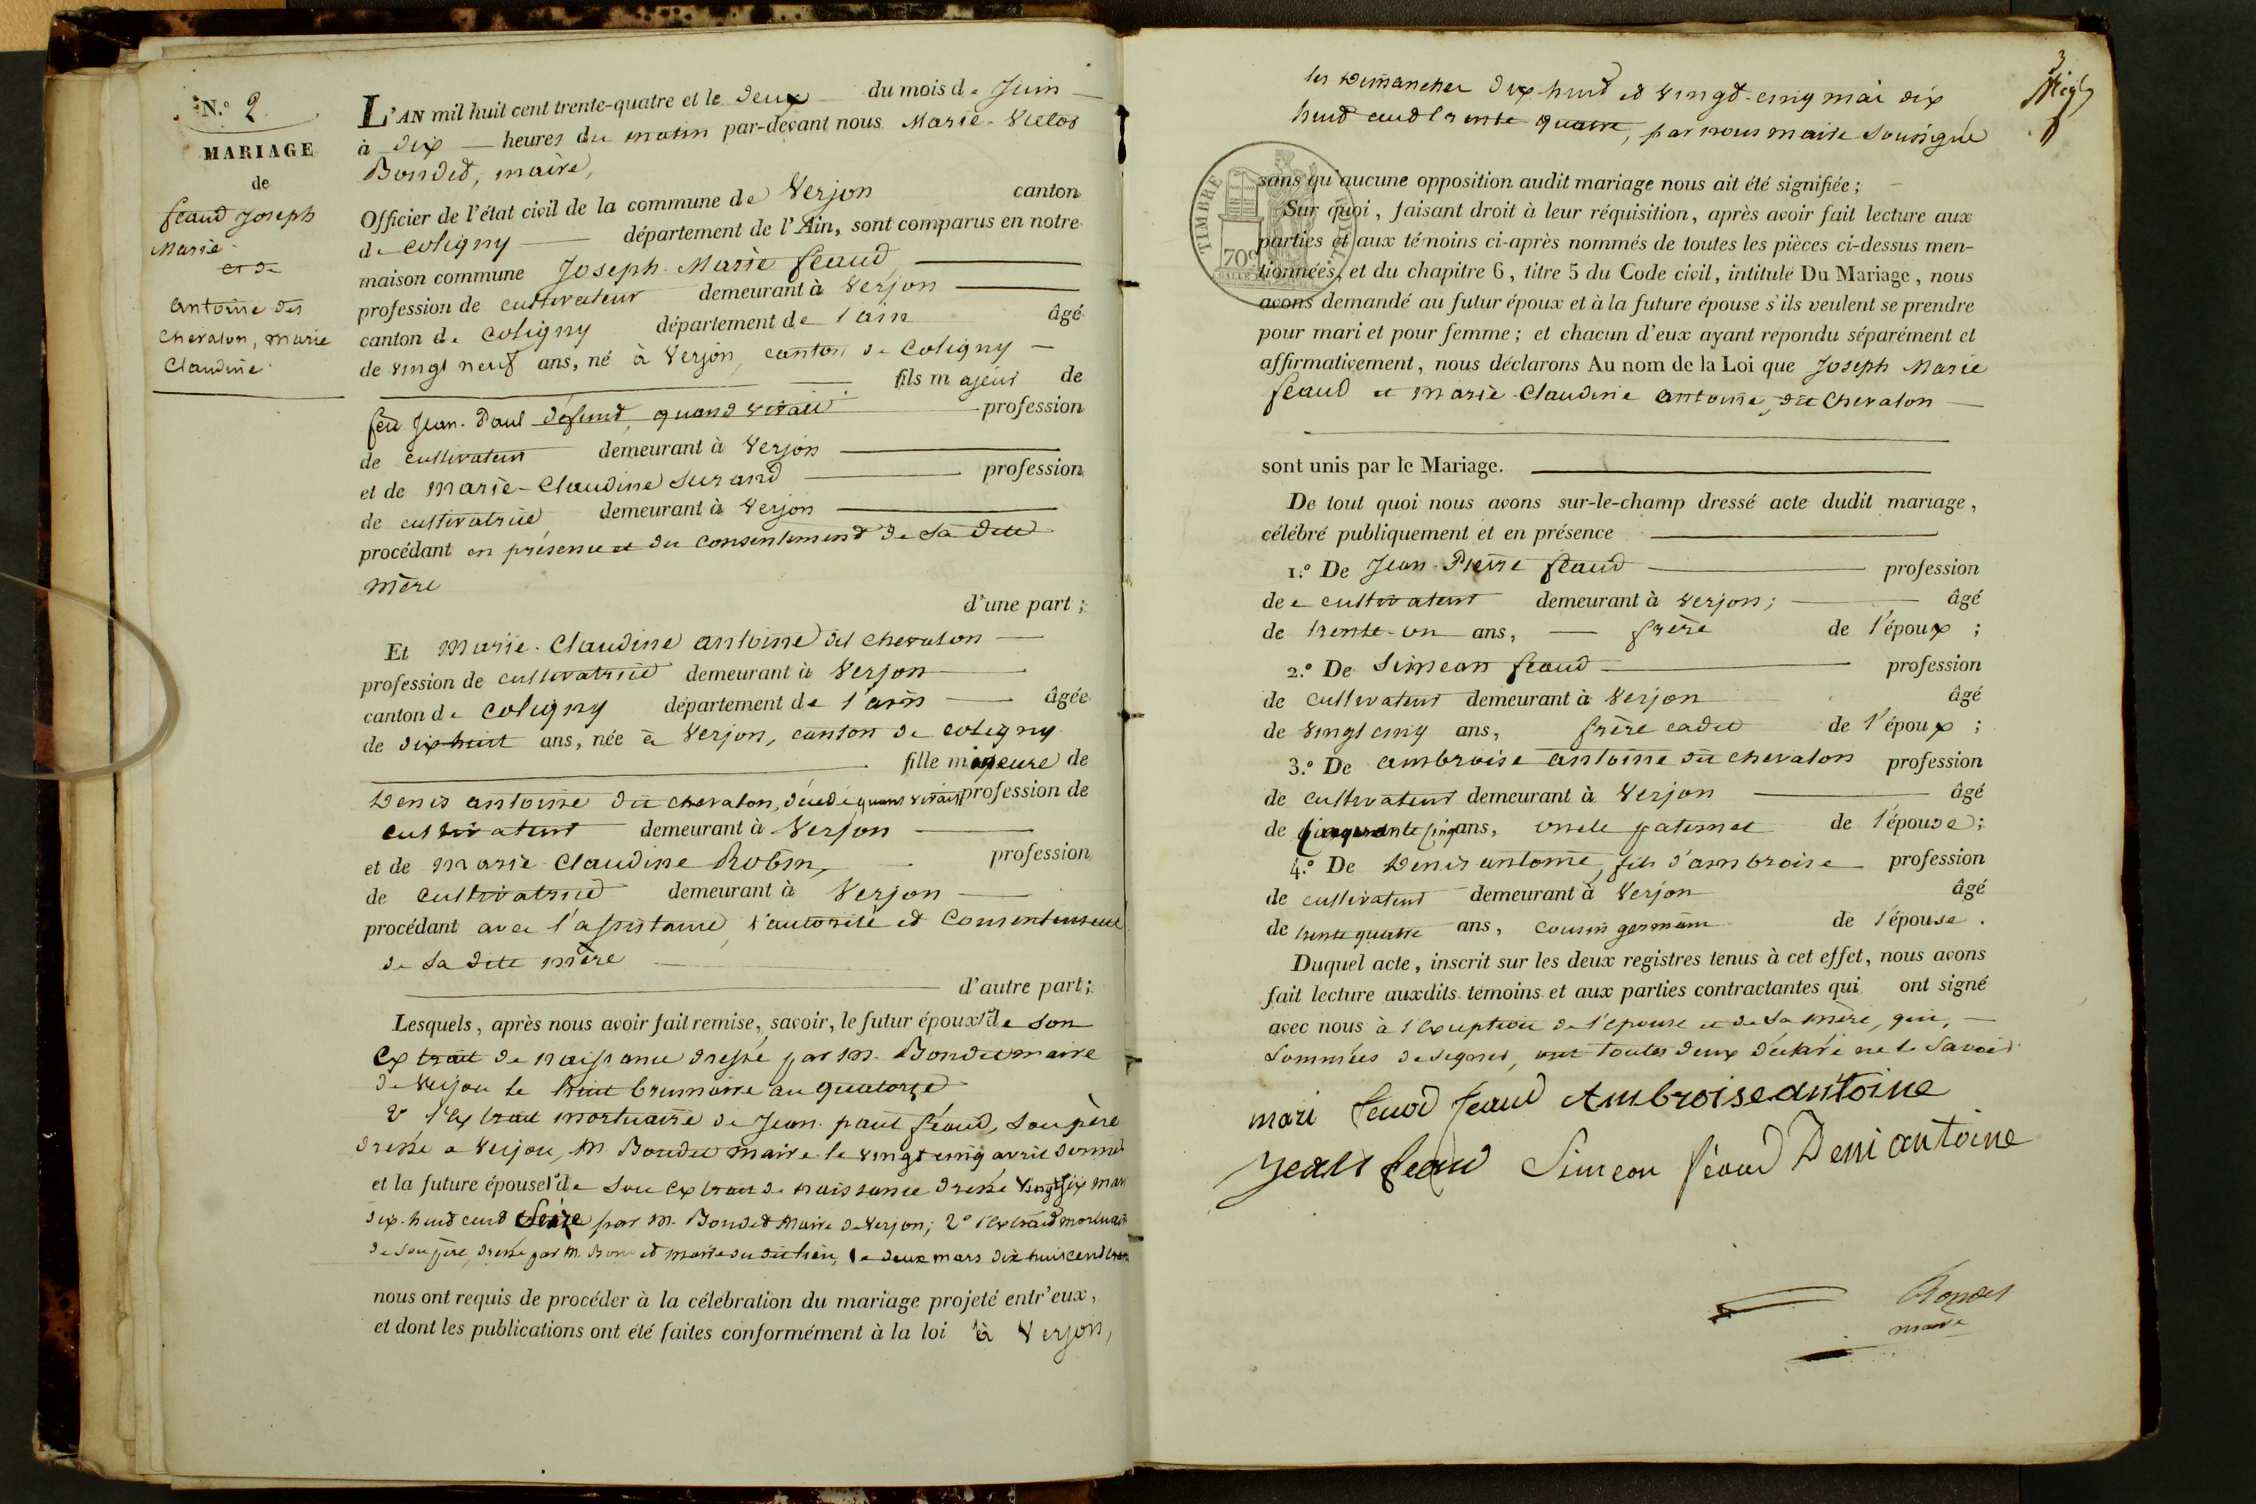 N.º 2
MARIAGE
de
feaud Joseph
Marie
et de
antoine dit
chevalon, marie
Claudine
L'AN mil huit cent trente-quatre et le deux du mois de Juin
à dix heures du matin par-devant nous Marie-
Bondet, maire,
Officier de l'état civil de la commune de Verjon canton
de coligny département de l'Ain, sont comparus en notre
maison commune Joseph-Marie feaud
profession de cultivateur demeurant à Verjon
canton de coligny département de l'ain âgé
de vingt neuf ans, né à Verjon, canton de Coligny
fils majeur de
feu Jean-Paul défunt, quand vivait profession
de cultivateur demeurant à Verjon
et de Marie-Claudine surand profession
de cultivatrice demeurant à Verjon
procédant en présence et du consentement de sa dite
mère
d'une part ;
Et Marie-Claudine antoine dit chevalon
profession de cultivatrice demeurant à Verjon
canton de coligny département de l'ain âgée
de dix huit ans, née à Verjon, canton de coligny
fille mineure de
Denis antoine dit chevalon, décédé quand vivait profession de
cultivateur demeurant à Verjon
et de marie-Claudine Robin, profession
de cultivatrice demeurant à Verjon
procédant avec l'assistance, l'autorité et consentement
de sa dite mère
d'autre part ;
Lesquels, après nous avoir fait remise, savoir, le futur époux 1º de son
extrait de naissance dressé par M. Bondet maire
de Verjon le huit brumaire an quatorze
2º l'extrait mortuaire de Jean-paul féaud, son père
dressé a Verjon, M. Bondet maire le vingt cinq avril
et la future épouse 1º de son extrait de naissance dressé vingt six mars
dix-huit cent seize par M. Bondet Maire de Verjon ; 2º l'extrait mortuaire
de son père, dressé par M. Bondet maire du dit lieu, le deux mars dix huit cent
nous ont requis de procéder à la célébration du mariage projeté entr'eux,
et dont les publications ont été faites conformément à la loi à Verjon,
3
les Dimanches dix-huit et vingt-cinq mai dix
huit cent trente quatre, par nous maire soussigné
TIMBRE
70c
sans qu'aucune opposition audit mariage nous ait été signifiée ;
Sur quoi, faisant droit à leur réquisition, après avoir fait lecture aux
parties et aux témoins ci-après nommés de toutes les pièces ci-dessus men-
tionnées, et du chapitre 6, titre 5 du Code civil, intitulé Du Mariage, nous
avons demandé au futur époux et à la future épouse s'ils veulent se prendre
pour mari et pour femme ; et chacun d'eux ayant répondu séparément et
affirmativement, nous déclarons Au nom de la Loi que Joseph Marie
feaud et marie-Claudine antoine, dit Chevalon
sont unis par le Mariage.
De tout quoi nous avons sur-le-champ dressé acte dudit mariage,
célébré publiquement et en présence
1.º De Jean-Pierre feaud profession
de cultivateur demeurant à Verjon ; âgé
de trente-un ans, frère de l'époux ;
2.º De Simeon feaud profession
de cultivateur demeurant à Verjon âgé
de vingt cinq ans, frère cadet de l'époux ;
3.º De ambroise antoine dit chevalon profession
de cultivateur demeurant à Verjon âgé
de Cinquante cinq ans, oncle paternel de l'épouse ;
4.º De Denis antoine, fils d'ambroise profession
de cultivateur demeurant à Verjon âgé
de trente quatre ans, cousin germain de l'épouse .
Duquel acte, inscrit sur les deux registres tenus à cet effet, nous avons
fait lecture auxdits témoins et aux parties contractantes qui ont signé
avec nous à l'exception de l'épouse et de sa mère, qui,
sommées de signer, ont toutes deux déclaré ne le savoir
mari feaud Ambroise antoine
Jean feaud Simeon féaud Deni antoine
Bondet
maire